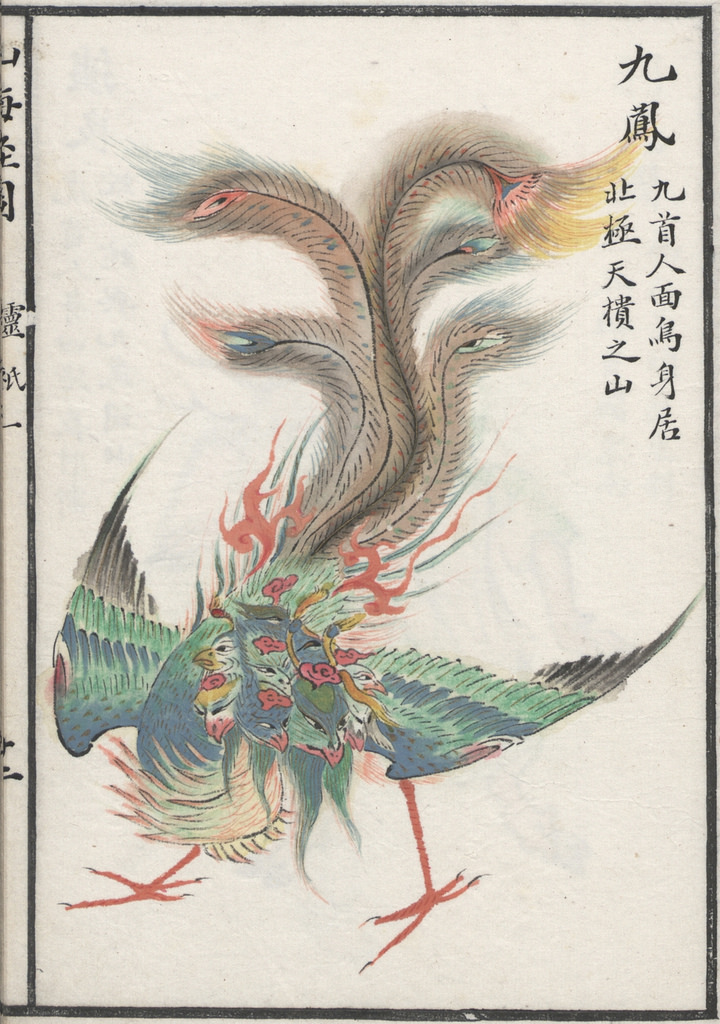 九鳳
九首人面鳥身居
北極天樻之山
山海圣圖
靈祇一
廿二